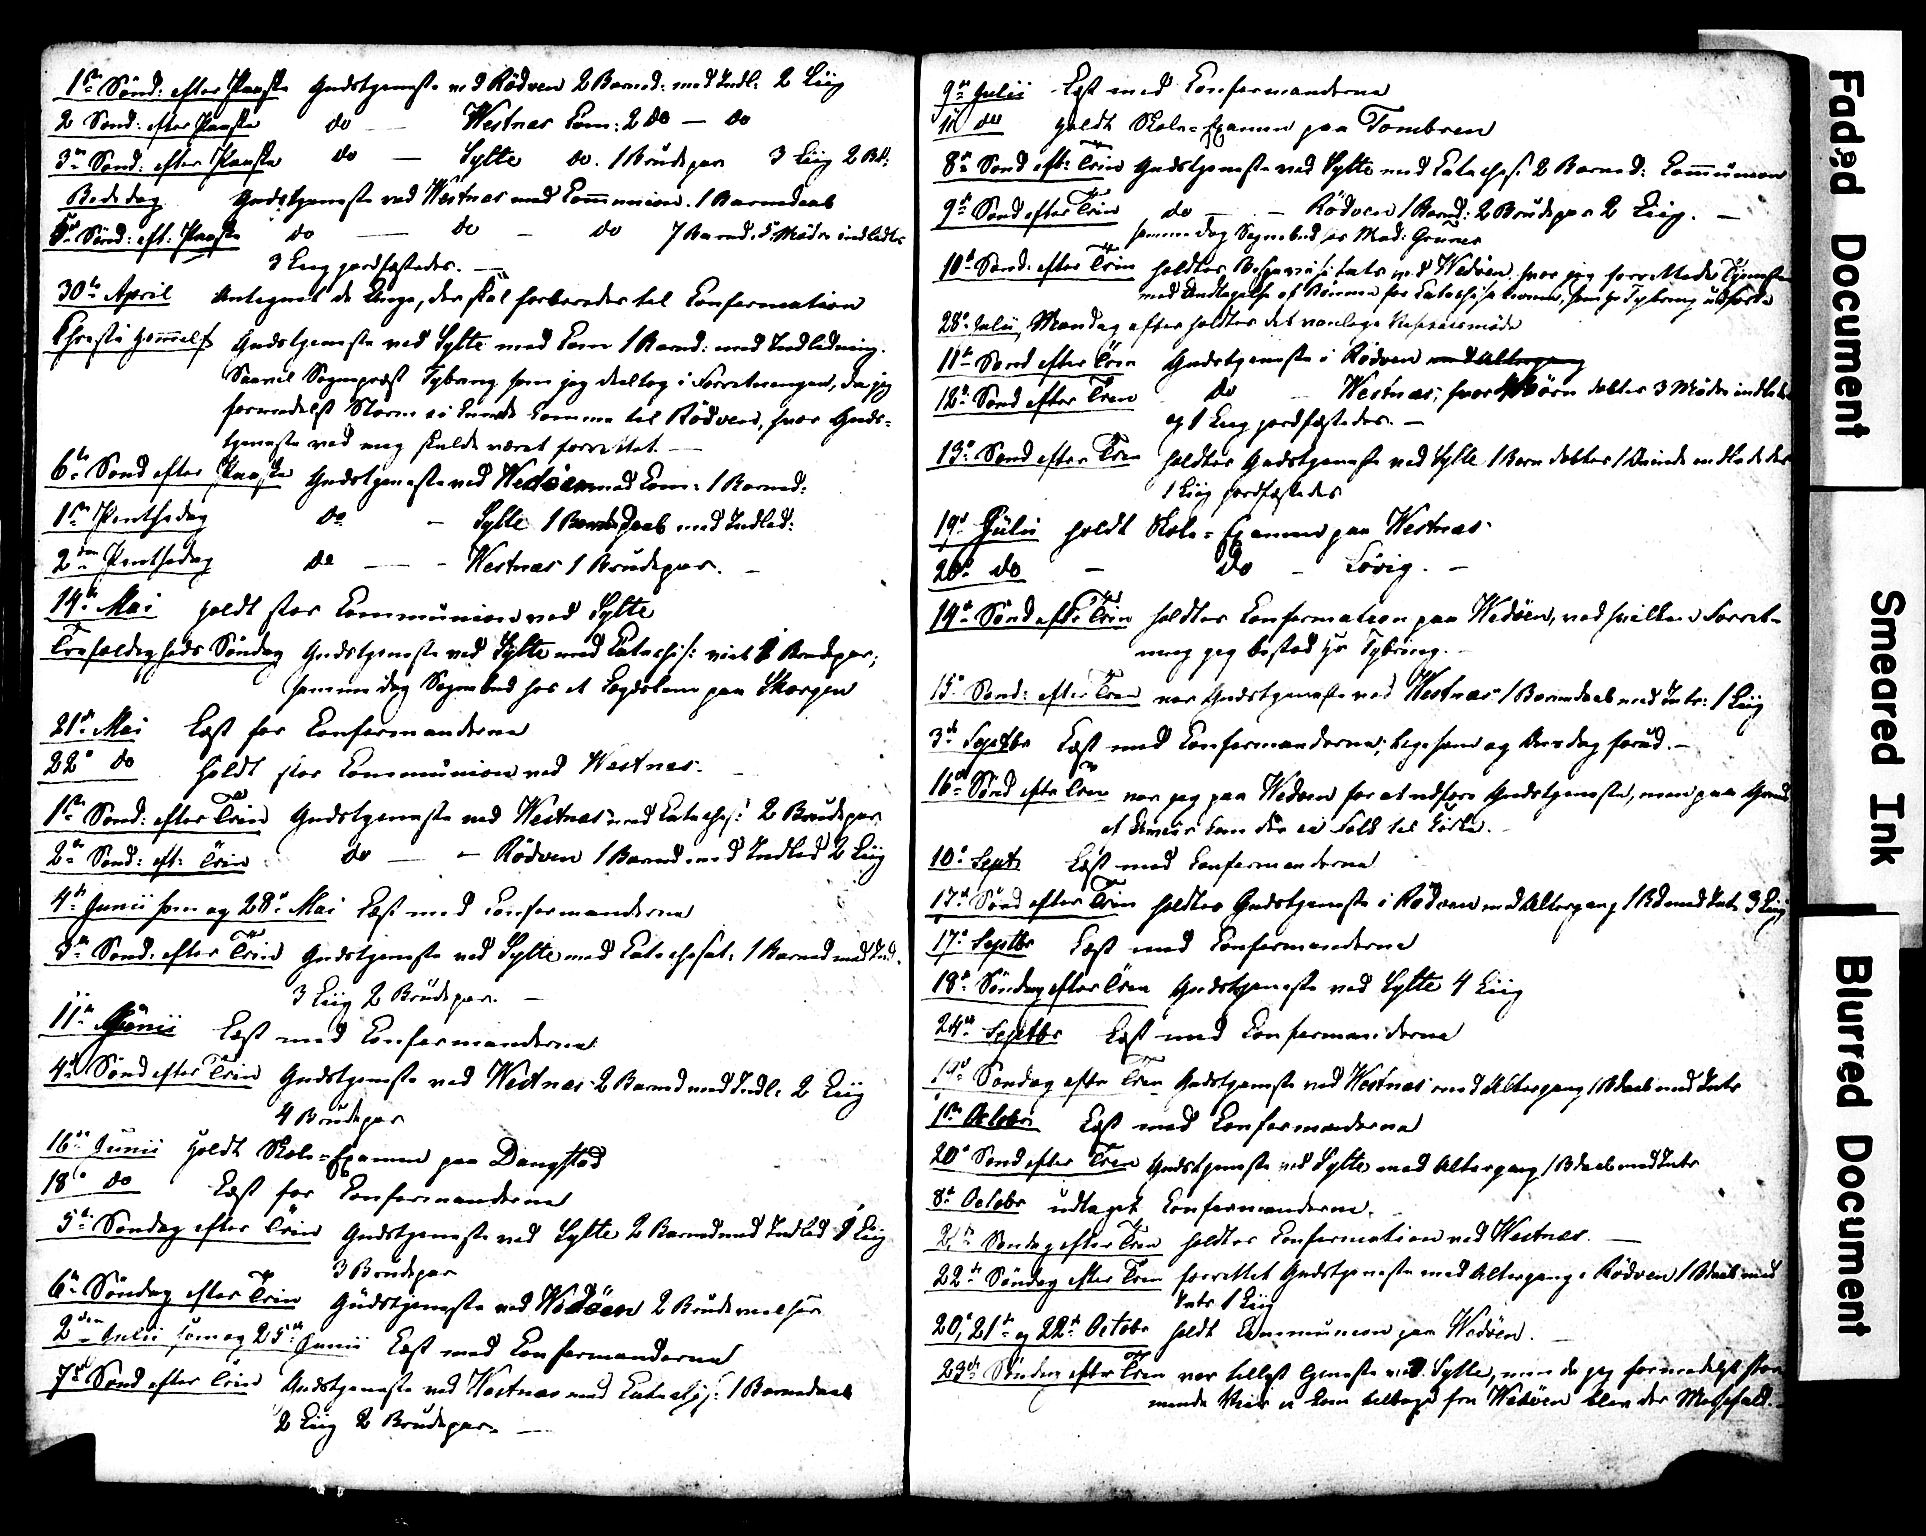 1ste Sönd: efter Paaske Gudstjeneste ved Rödven 2 Barned: med Indl: 2 Liig
2 Sönd: efter Paaske do — Westnes Com: 2 do — do
3die Sönd: efter Paaske do — Sylte do. 1 Brudepar 3 Liig 2 Bd:
Bededag Gudstjeneste ved Westnes med Communion. 1 Barnedaab
5te Sönd: eft: Paaske do — do — do 7 Barned. 5 Mödre indledte
3 Liig jordfæstedes. —
30te April Antegnet de Unge, der skal forberedes til Confermation
Christi Himmelf Gudstjeneste ved Sylte med Com 1 Barned: med Indledning.
Sogneprest Tybring som jeg deeltog i Forretningen, da jeg
formedelst Storm ei kunde komme til Rödven, hvor Guds-
tjeneste ved mig skulde været forrettet —
6te Sönd efter Paaske Gudstjeneste ved Wedöen med Com: 1 Barned:
1ste Pentsedag do — Sylte 1 Barnedaab med Indled:
2den Pentsedag do — Westnes 1 Brudepar. —
14de Mai holdt stor Communion ved Sylte
Trefoldigheds Söndag Gudstjeneste ved Sylte med Catechis: viet 1 Brudepar;
samme dag Sognebud hos et Lægdslem paa Skorgen
21de Mai Læst for Confermanderne
22de do holdt stor Communion ved Westnes. —
1ste Sönd: efter Trin Gudstjeneste ved Westnes med Catechis: 2 Brudepar
2den Sönd: eft: Trin do — Rödven 1 Barned med Indled 2 Liig
4de Junii som og 28de Mai Læst med Confermanderne
3die Sönd: efter Trin Gudstjeneste ved Sylte med Catechisat: 1 Barned med Ind.
3 Liig 2 Brudepar. —
11te Junii Læst med Confermanderne
4de Sönd efter Trin Gudstjeneste ved Westnes 2 Barned med Indl: 2 Liig
4 Brudepar
16de Junii holdt Skole-Examen paa Daugstad
18de do Læst for Confermanderne
5te Söndag efter Trin Gudstjeneste ved Sylte 2 Barned med Indled 1 Liig
3 Brudepar
6te Söndag efter Trin Gudstjeneste ved Wedöen 2 Brudevielser
2den Julii som og 25de Junii Læst med Confermanderne
7de Sönd efter Trin Gudstjeneste ved Westnes med Catechis: 1 Barnedaab
2 Liig 2 Brudepar. —
9de Julii Læst med Confermanderne
11te do holdt Skole-Examen paa Tombren
8de Sönd eft: Trin Gudstjeneste ved Sylte med Catechis: 2 Barned: Communion
9de Sönd efter Trin do — Rödven 1 Barned: 2 Brudepar 2 Liig. —
samme dag Sognebud
10de Sönd: efter Trin holdtes Bispevisitats ved Wedöen, hvor jeg forrettede Tjenesten
med Undtagelse af Bönnen for Catechisationen, som Hr Tybring udförte
28de Julii, Mandag efter holdtes det vanlige
11te Sönd efter Trin Gudstjeneste i Rödven med Altergang
12te Sönd efter Trin do — Westnes, hvor Börn döbtes 3 Mödre indledte
og 1 Liig jordfæstedes. —
13de Sönd efter Trin holdtes Gudstjeneste ved Sylte 1 Barn döbtes 1 Qvinde indledtes
1 Liig jordfæstedes
19de Julii holdt Skole-Examen paa Westnes
20de do — do — Sövig. —
14de Sönd eft: Trin holdtes Confermation paa Wedöen, ved hvilken Forret-
ning jeg bistod Hr Tybring. —
15de Sönd: efter Trin var Gudstjeneste ved Westnes 1 Barnedaab med Intr: 1 Liig
3de Septbr Læst med Confermanderne; ligesom og Onsdag forud. —
16de Sönd eftr Trin var jeg paa Wedöen for at udföre Gudstjeneste, men paa Grund
af Uveir kom der ei Folk til Kirke. —
10de Septr Læst med Confermanderne
17de Sönd efter Trin holdtes Gudstjeneste i Rödven med Altergang 1 Bd med Int. 3 Liig
17de Septbr Læst med Confermanderne
18de Söndag efter Trin Gudstjeneste ved Sylte 4 Liig
24de Septbr Læst med Confermanderne
19de Söndag eftr Trin Gudstjeneste ved Westnes med Altergang 1 Bdaab med Intr
1ste Octobr Læst med Confermanderne
20de Sönd efter Trin Gudstjeneste ved Sylte med Altergang 1 Bdaab med Intr
8de Octobr udtaget Confermanderne.
21de Söndag efter Trin holdtes Confermation ved Westnes. —
22de Söndag efter Trin forrettet Gudstjeneste med Altergang i Rödven 1 Bdaab med
Intr 1 Liig
20, 21de og 22de Octobr holdt Communion paa Wedöen. —
23de Söndag eftr Trin var tillyst Tjeneste ved Sylte, men da jeg formedelst stor-
mende Veir ei kom tilbage fra Wedöen blev der Messefald.
Faded Document
Smeared Ink
Blurred Document